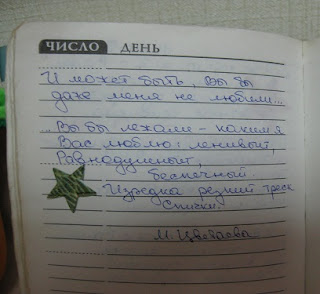 ЧИСЛО ДЕНЬ
И может быть, Вы бы
даже меня не любили...
...Вы бы лежали – каким я
Вас люблю: ленивый,
Равнодушный,
беспечный.
Изредка резкий треск
Спички.
М. Цветаева